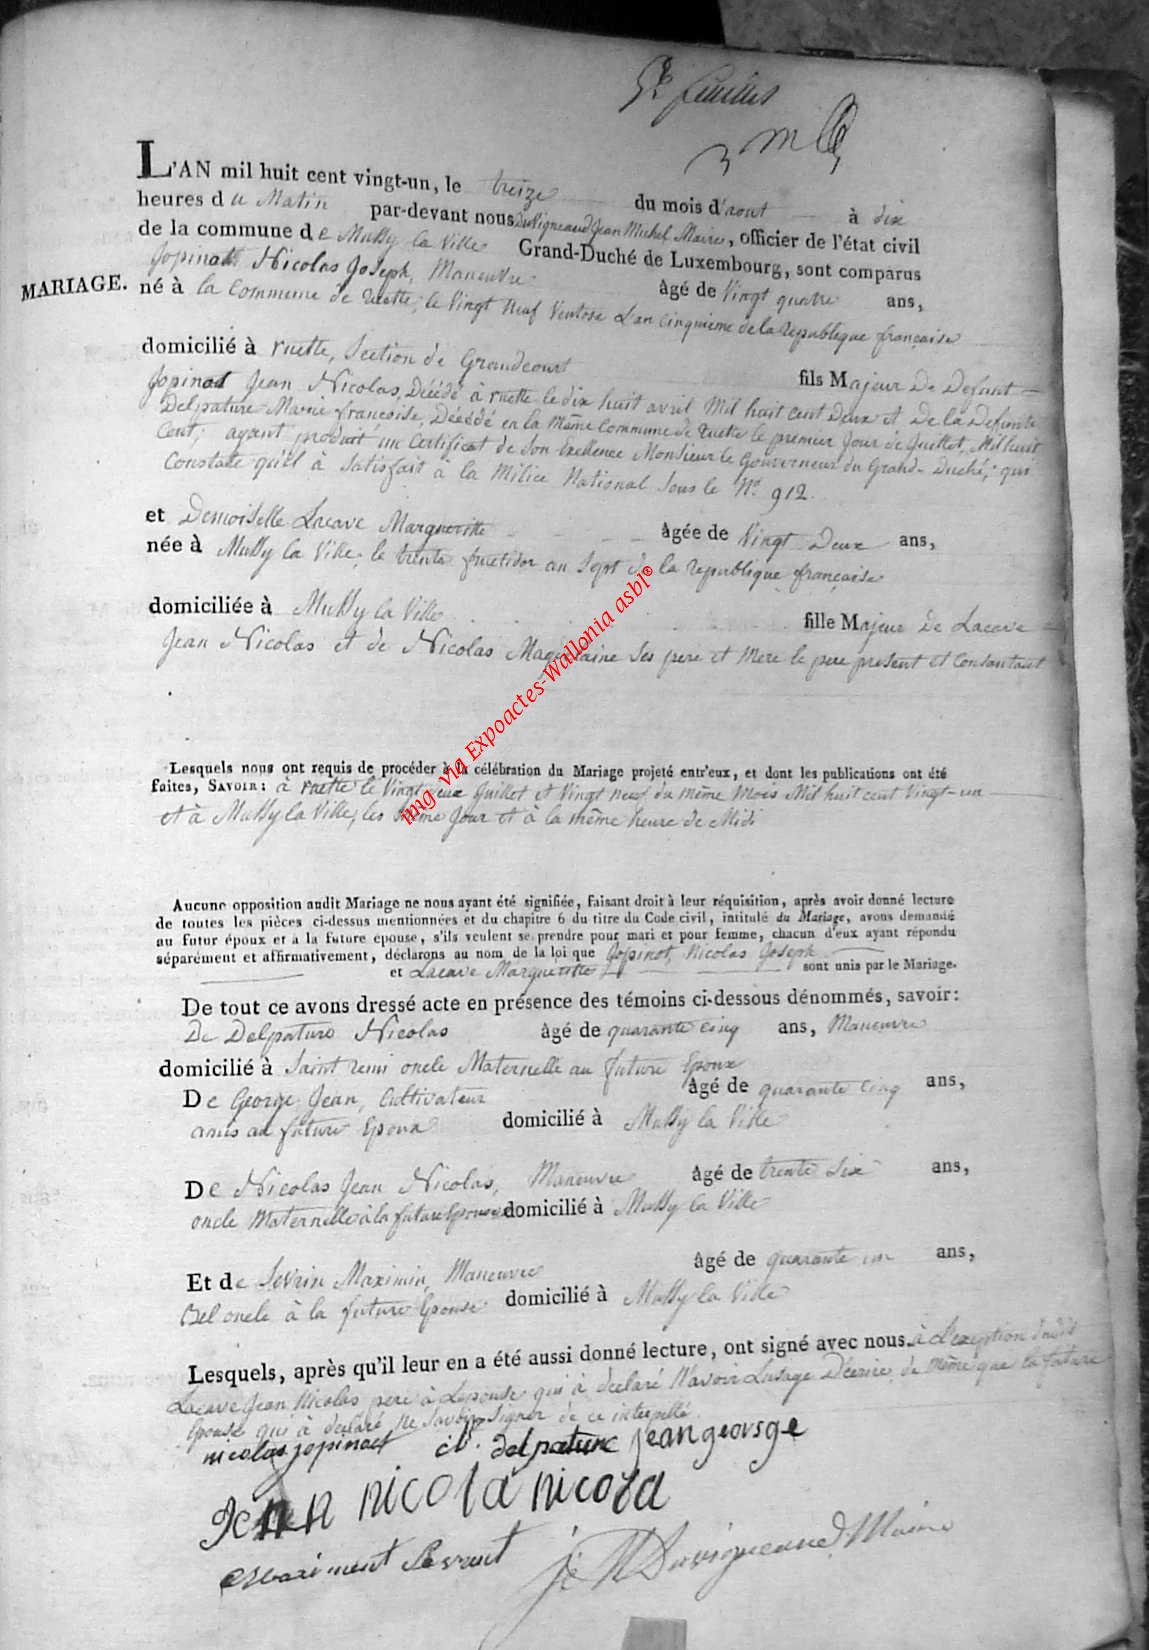 5e feuillet
L'AN mil huit cent vingt-un, le treize du mois d'aout à dix
heures du Matin par-devant nous Duvigneaud Jean Michel Maire, officier de l'état civil
de la commune de Mussy la Ville Grand-Duché de Luxembourg, sont comparus
Jopinot Nicolas Joseph, Maneuvre âgé de Vingt quatre ans,
MARIAGE.
né à la Commune de ruette, le Vingt Neuf Ventose L'an cinquieme de la republique française
domicilié à ruette, Section de Grandcourt fils Majeur De Defunt
Jopinot Jean Nicolas, Décédé à ruette le dix huit avril Mil huit cent Deux et De la Defunte
Delpature Marie françoise, Décédé en la même Commune de ruette le premier Jour de Juillet, Mil huit
Cent; ayant produit un Certificat de Son Exellence Monsieur le Gouverneur du Grand-Duché, qui
Constate qu'il à Satisfait à la Milice National Sous le No. 912.
et Demoiselle Lacave Margueritte âgée de Vingt Deux ans,
née à Mussy la Ville, le trente fructidor an Sept de la republique française
domiciliée à Mussy la Ville fille Majeur de Lacave
Jean Nicolas et de Nicolas Magdelaine Ses pere et Mere le pere present et Consantant
Lesquels nous ont requis de procéder à la célébration du Mariage projeté entr'eux, et dont les publications ont été
faites, SAVOIR: à ruette le Vingt deux Juillet et Vingt neuf du même Mois Mil huit cent Vingt-un
et à Mussy la Ville, les même Jour et à la même heure de Midi
Aucune opposition audit Mariage ne nous ayant été signifiée, faisant droit à leur réquisition, après avoir donné lecture
de toutes les pièces ci-dessus mentionnées et du chapitre 6 du titre du Code civil, intitulé du Mariage, avons demandé
au futur époux et à la future épouse, s'ils veulent se prendre pour mari et pour femme, chacun d'eux ayant répondu
séparément et affirmativement, déclarons au nom de la loi que Jopinot, Nicolas Joseph
et Lacave Margueritte sont unis par le Mariage.
De tout ce avons dressé acte en présence des témoins ci-dessous dénommés, savoir:
De Delpature Nicolas âgé de quarante cinq ans, Maneuvre
domicilié à Saint remi oncle Maternelle au future Epoux
De George Jean, Cultivateur âgé de quarante Cinq ans,
amis au future Epoux domicilié à Mussy la Ville
De Nicolas Jean Nicolas, Maneuvre âgé de trente Six ans,
oncle Maternelle à la future Epouse domicilié à Mussy la Ville
Et de Sevrin Maximin, Maneuvre âgé de quarante un ans,
Bel oncle à la future Epouse domicilié à Mussy la Ville
Lesquels, après qu'il leur en a été aussi donné lecture, ont signé avec nous à L'exeption dudit
Lacave Jean Nicolas pere à Lepouse qui à declaré N'avoir Lusage Décrire, de même que la future
Epouse qui à declaré Ne Savoir Signer de ce interpellé.
nicolas jopinot delpature jean georsge
Jean nicola nicola
maximent Sevrent J M Duvigneaud Maire
img via Expoactes-Wallonia asbl®